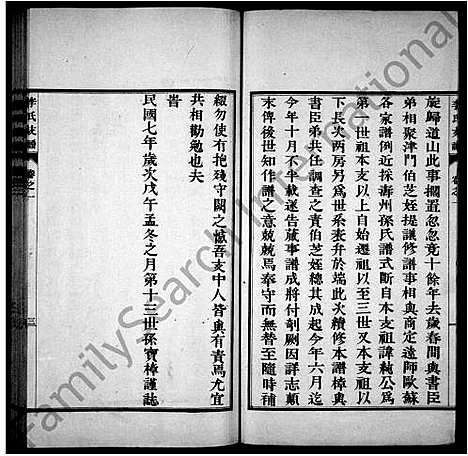 旋歸道山此事擱置忽忽竟十餘年去歲春間與書臣
弟相聚津門伯芝姪提議修譜事相與商定遠師歐蘇
各家譜例近採壽州孫氏譜式斷自本支祖諱 公爲
第一世祖本支以上自始遷祖以至三世又本支祖以
下長次兩房另爲世系表弁於端此次續修本譜樟與
書臣弟共任調查之責伯芝姪總其成起今年六月迄
今年十月不半載遂告蕆事譜成將付剞劂因詳志顛
末俾後世知作譜之意兢兢焉奉守而無替至隨時補
綴勿使有抱殘守闕之憾吾支中人皆與有責焉尤宜
共相勸勉也夫
旹
民國七年歲次戊午孟冬之月第十三世孫寶樟謹誌
李氏支譜
卷之一
三